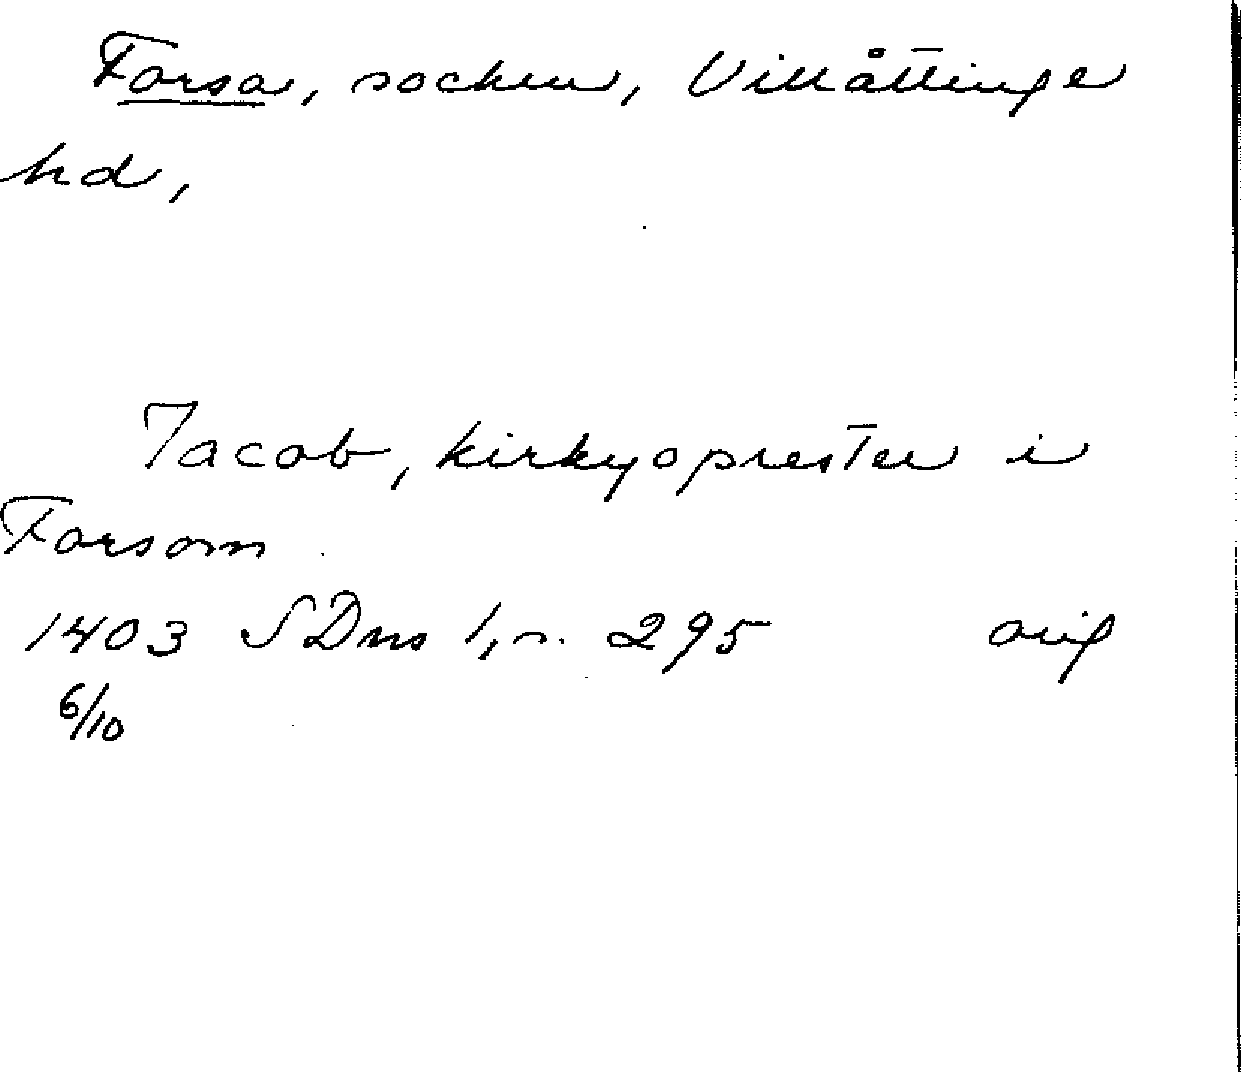 Forsa, socken, Villåttinge
hd,
Jacob, kirkyopresten i
Forsom
1403 SDns 1, s. 295 orig
6/10